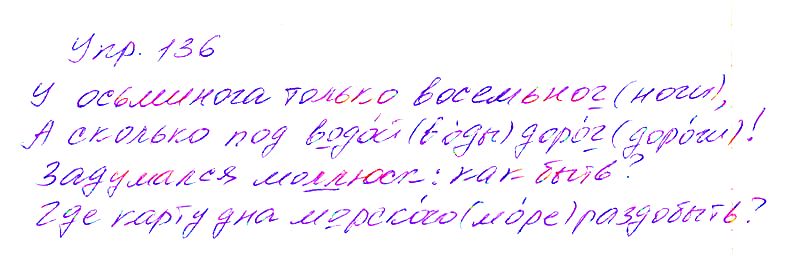 Упр. 136
У осьминога только восемь ног (ноги),
А сколько под водо́й (во́ды) доро́г (доро́ги)!
Задумался моллюск: как быть?
Где карту дна морско́го (мо́ре) раздобыть?